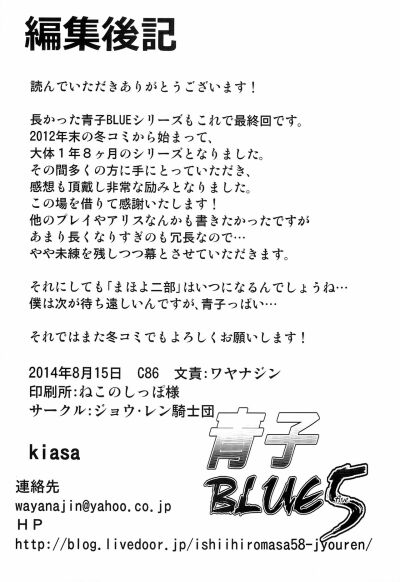 編集後記
読んでいただきありがとうございます！
長かった青子BLUEシリーズもこれで最終回です。
2012年末の冬コミから始まって、
大体１年８ヶ月のシリーズとなりました。
その間多くの方に手にとっていただき、
感想も頂戴し非常な励みとなりました。
この場を借りて感謝いたします！
他のプレイやアリスなんかも書きたかったですが
あまり長くなりすぎのも冗長なので…
やや未練を残しつつ幕とさせていただきます。
それにしても「まほよ二部」はいつになるんでしょうね…
僕は次が待ち遠しいんですが、青子っぱい…
それではまた冬コミでもよろしくお願いします！
2014年8月15日　C86　文責：ワヤナジン
印刷所：ねこのしっぽ様
サークル：ジョウ・レン騎士団
kiasa
連絡先
wayanajin@yahoo.co.jp
ＨＰ
http://blog.livedoor.jp/ishiihiromasa58-jyouren/
青子
BLUE5
five